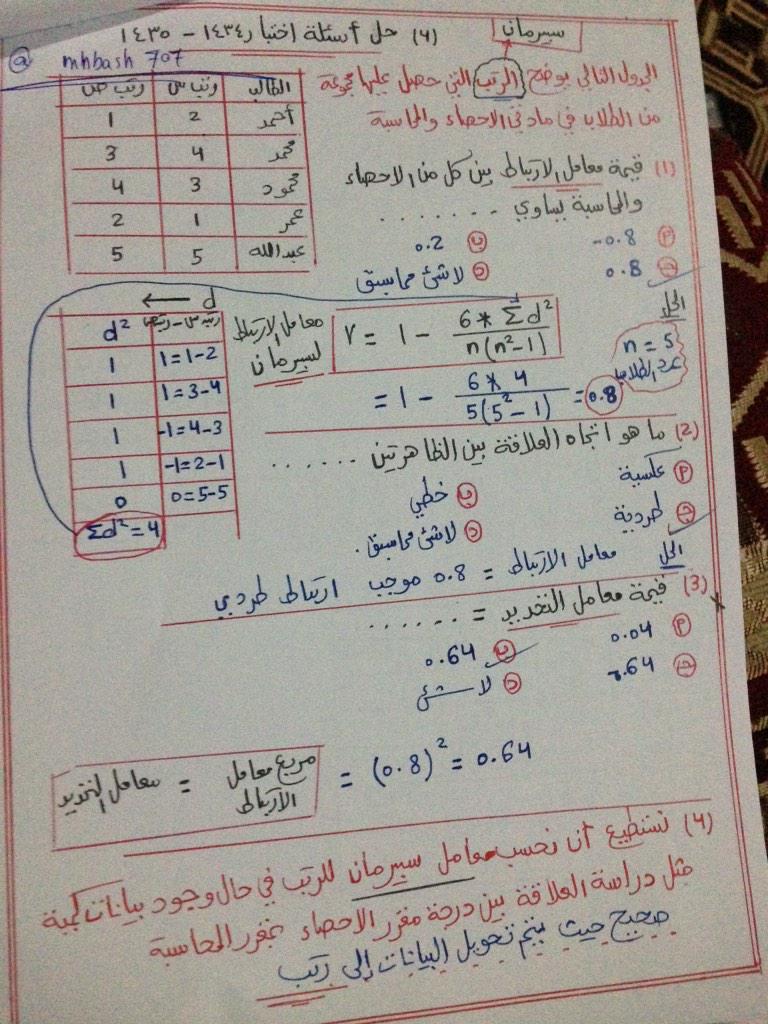 سيرمان
(٦) حل أسئلة اختبار ١٤٣٤ - ١٤٣٥
@ mhbash 707
الجدول التالي يوضح الرتب التي حصل عليها مجموعة
من الطلاب في مادتي الاحصاء والمحاسبة
الطالب رتب س رتب ص
أحمد 2 1
محمد 4 3
محمود 3 4
عمر 1 2
عبدالله 5 5
(1) قيمة معامل الارتباط بين كل من الاحصاء
والمحاسبة يساوي .......
أ -0.8 ب 0.2
ج 0.8 د لاشئ مماسبق
الحل
n = 5
عدد الطلاب
r = 1 - 6 * Σd² / n(n²-1)
معامل الارتباط
لسبرمان
= 1 - 6 * 4 / 5(5² - 1) = 0.8
d ←
رتب س - رتب ص d²
1=1-2 1
1=3-4 1
-1=4-3 1
-1=2-1 1
0=5-5 0
Σd² = 4
(2) ما هو اتجاه العلاقة بين الظاهرتين ......
أ عكسية ب خطي
ج طردية د لاشئ مماسبق .
الحل معامل الارتباط = 0.8 موجب ارتباط طردي
(3) قيمة معامل التحديد = ......
أ 0.04 ب 0.64
ج -.64 د لاشئ
معامل التحديد = مربع معامل الارتباط = (0.8)² = 0.64
(4) نستطيع أن نحسب معامل سبيرمان للرتب في حال وجود بيانات كمية
مثل دراسة العلاقة بين درجة مقرر الاحصاء بمقرر المحاسبة
صحيح حيث يتم تحويل البيانات إلى رتب